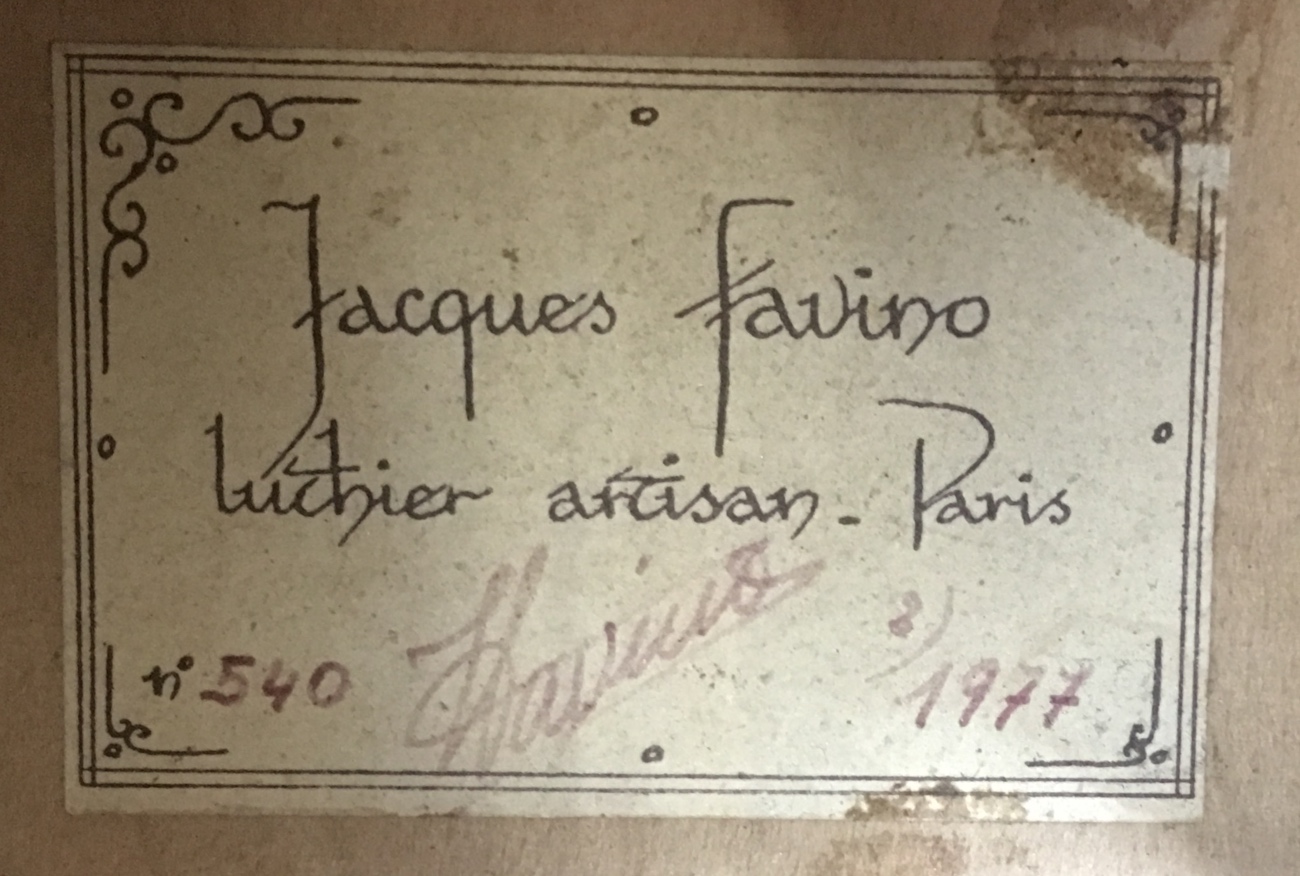 Jacques Favino
luthier artisan - Paris
Favino
2)
n° 540 1977